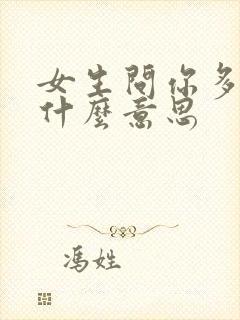 女生問你多
什麼意思
馮姓